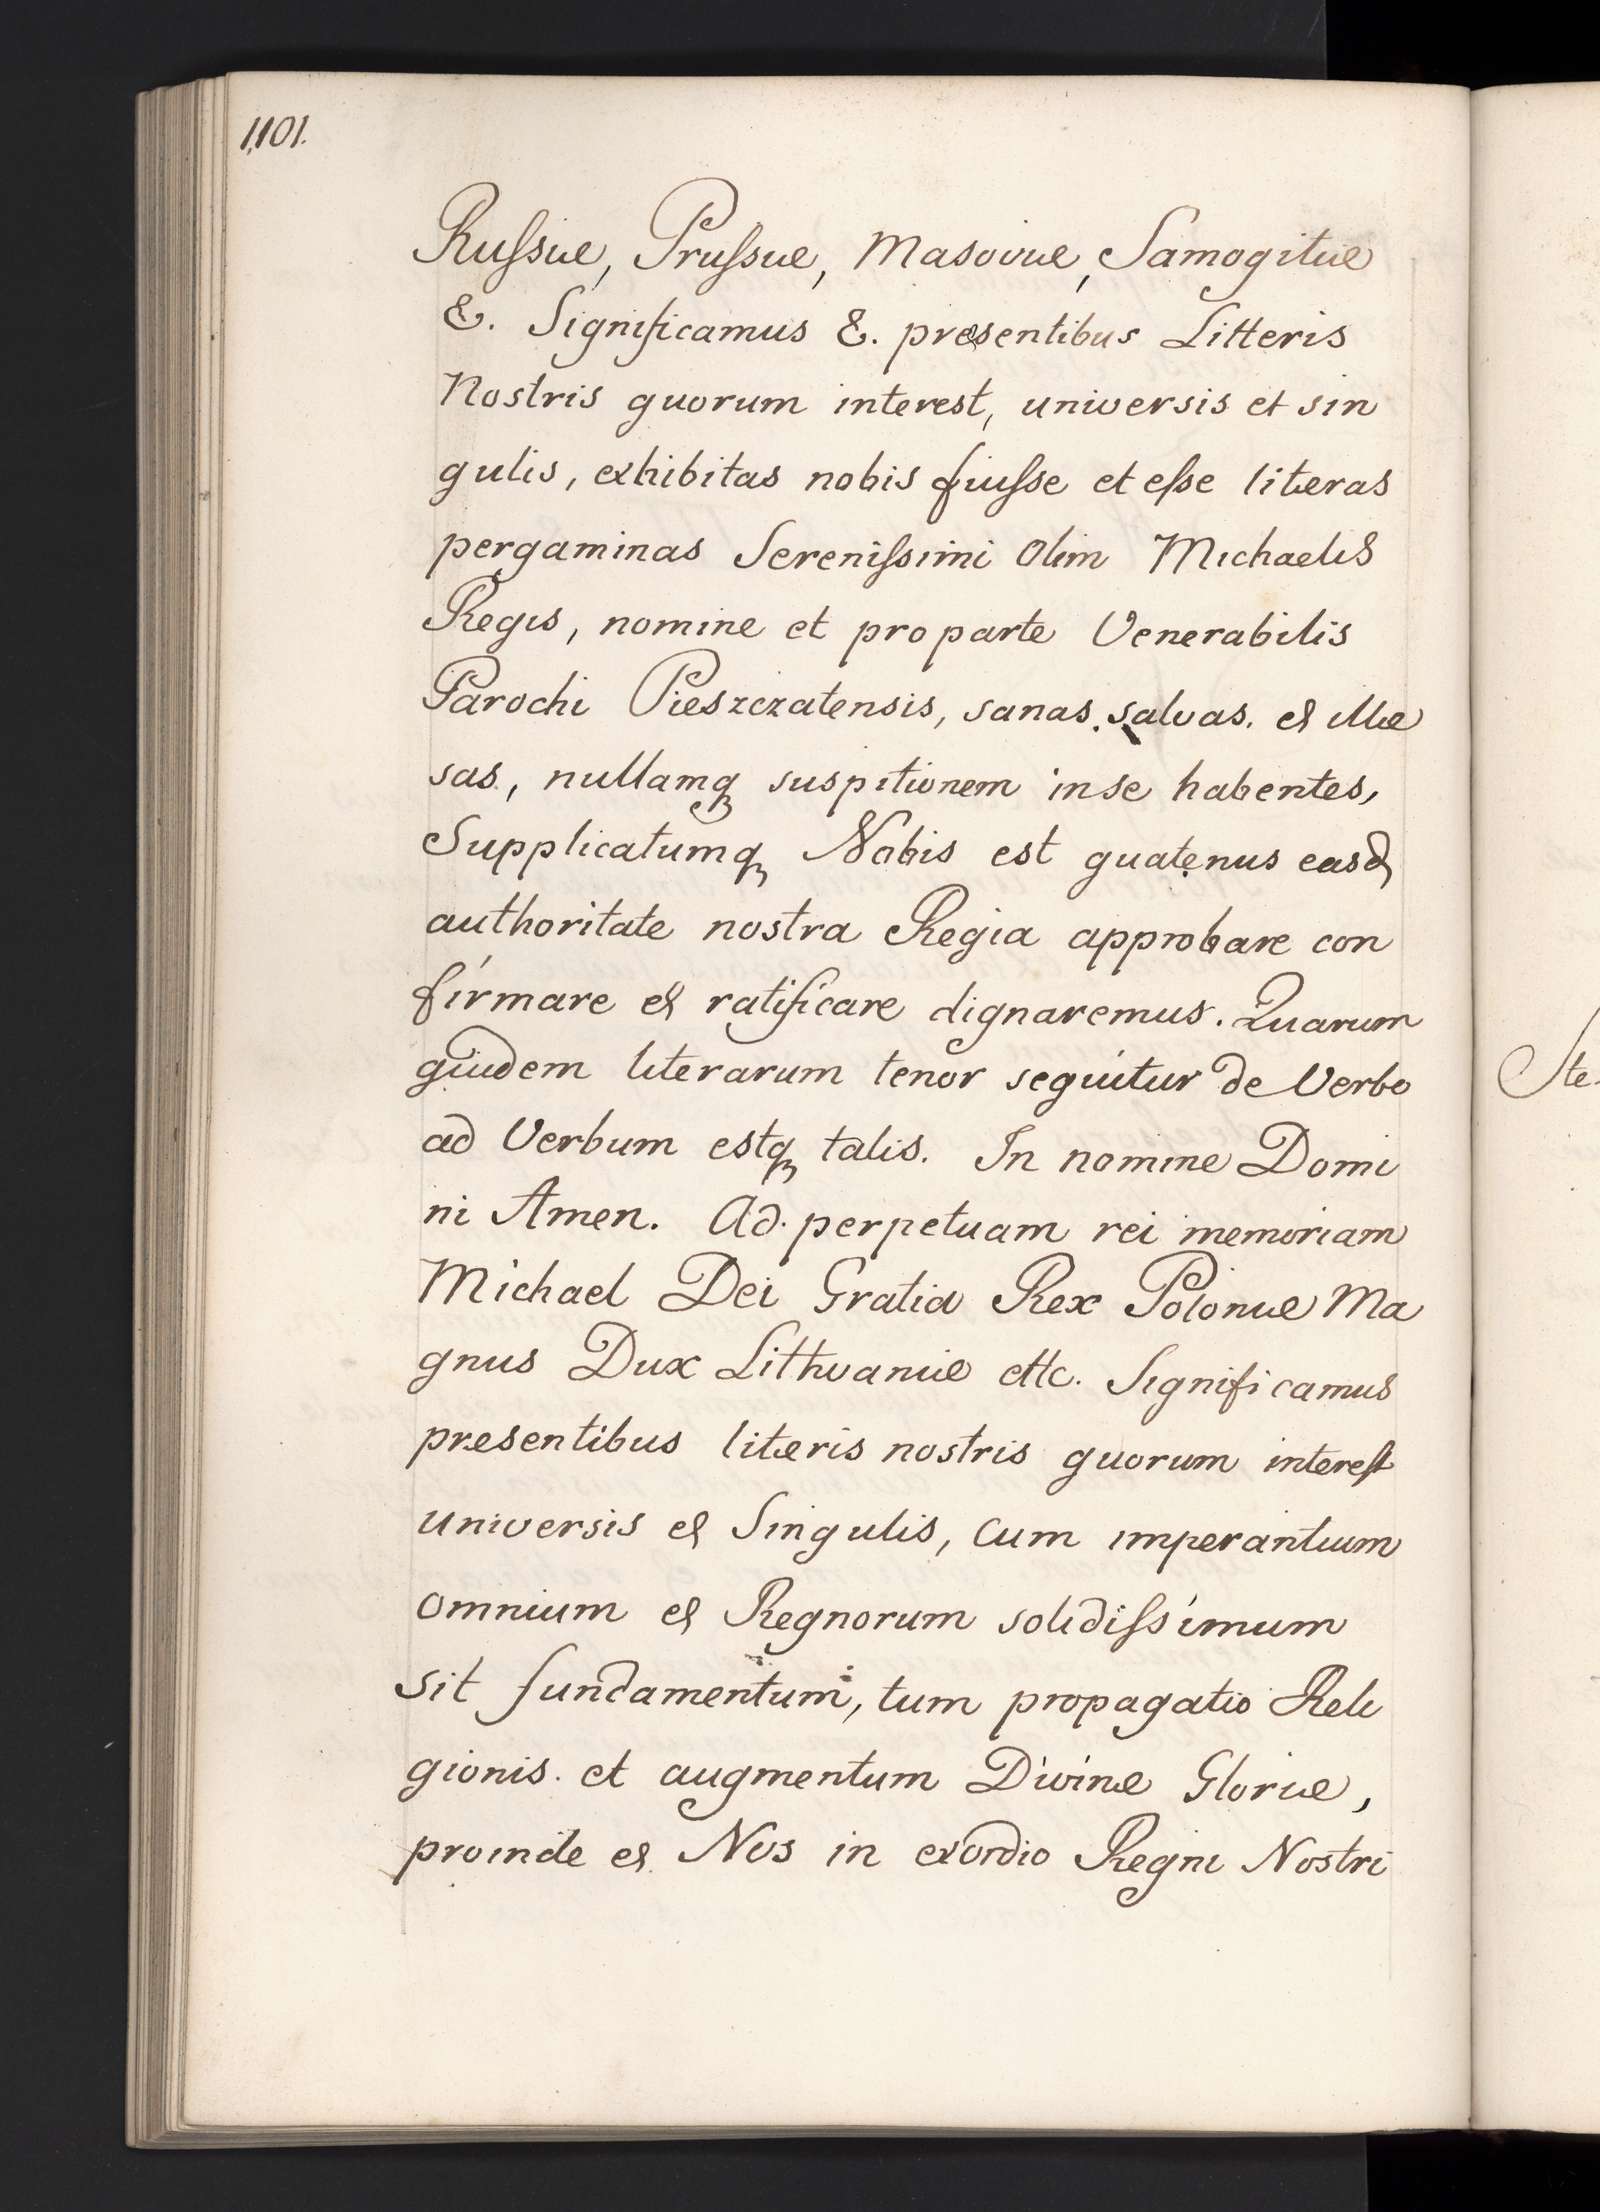 1,101.
Rufsiæ, Prufsiæ, Masoviæ, Samogitiæ
&. Significamus &. presentibus Litteris
Nostris quorum interest, universis et sin
gulis, exhibitas nobis fuifse et efse literas
pergaminas Serenifsimi Olim Michaelis
Regis, nomine et pro parte Venerabilis
Parochi Pieszczatensis, sanas, salvas. et illæ
sas, nullamq suspitionem in se habentes,
Supplicatumq Nobis est quatenus easd
authoritate nostra Regia approbare con
firmare et ratificare dignaremus. Quarum
quidem literarum tenor sequitur de Verbo
ad Verbum estq talis. In nomine Domi
ni Amen. Ad perpetuam rei memoriam
Michael Dei Gratia Rex Poloniæ Ma
gnus Dux Lithvaniæ ettc. Significamus
presentibus literis nostris quorum interest
universis et Singulis, Cum imperantium
omnium et Regnorum solidifsimum
sit fundamentum, tum propagatio Reli
gionis. et augmentum Divinæ Gloriæ,
proinde et Nos in exordio Regni Nostri
Ste